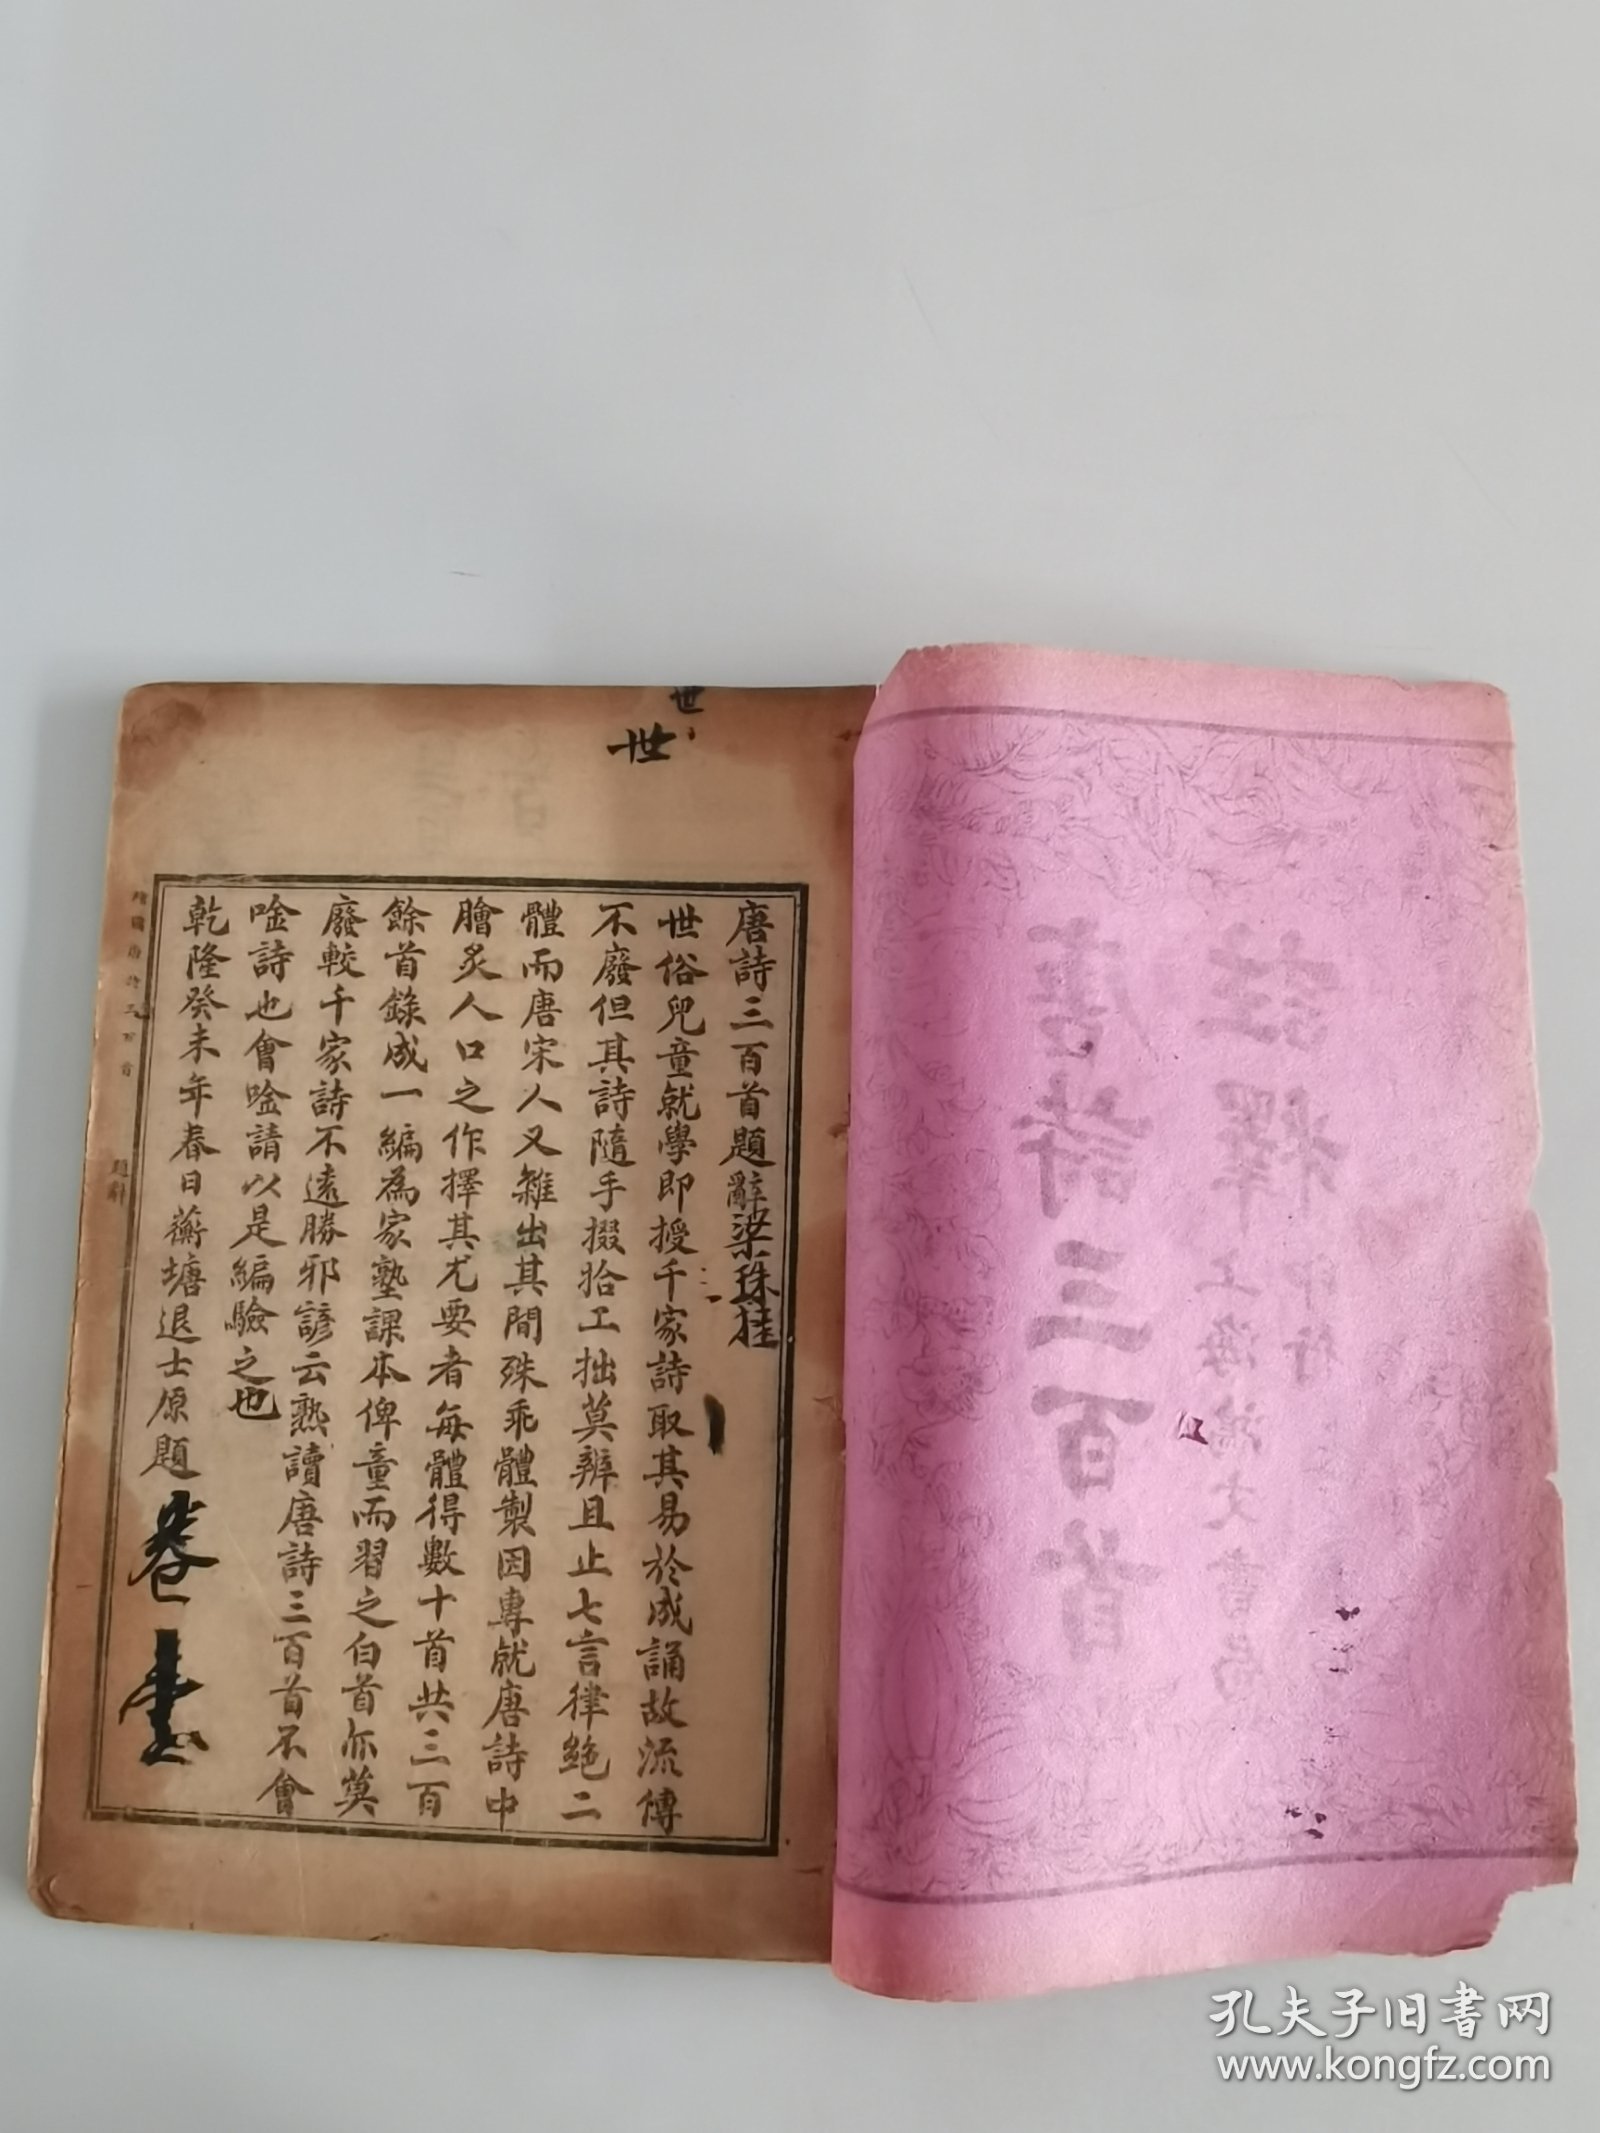 註釋
唐詩三百首
上海鴻文書局
印行
世
世
唐詩三百首題辭梁珠桂
世俗兒童就學即授千家詩取其易於成誦故流傳
不廢但其詩隨手掇拾工拙莫辨且止七言律絶二
體而唐宋人又雜出其間殊乖體製因專就唐詩中
膾炙人口之作擇其尤要者每體得數十首共三百
餘首錄成一編為家塾課本俾童而習之白首亦莫
廢較千家詩不遠勝邪諺云熟讀唐詩三百首不會
唫詩也會唫請以是編驗之也
乾隆癸未年春日蘅塘退士原題
卷壹
繪圖唐詩三百首
題辭
孔夫子旧書网
www.kongfz.com